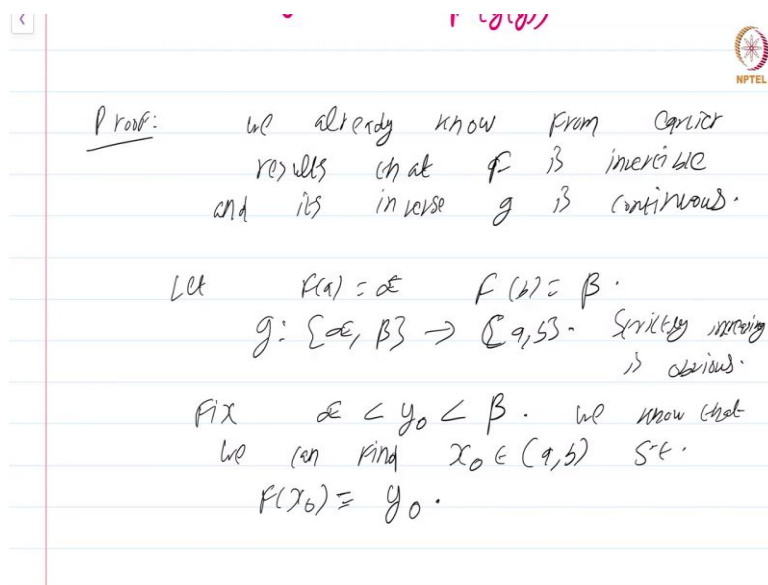 NPTEL
Proof: we already know from earlier
results that F is invertible
and its inverse g is continuous.
Let F(a) = α F(b) = β.
g: [α, β] → [a, b]. Strictly increasing
is obvious.
Fix α < y₀ < β. we know that
we can find x₀ ∈ (a, b) s.t.
F(x₀) = y₀.